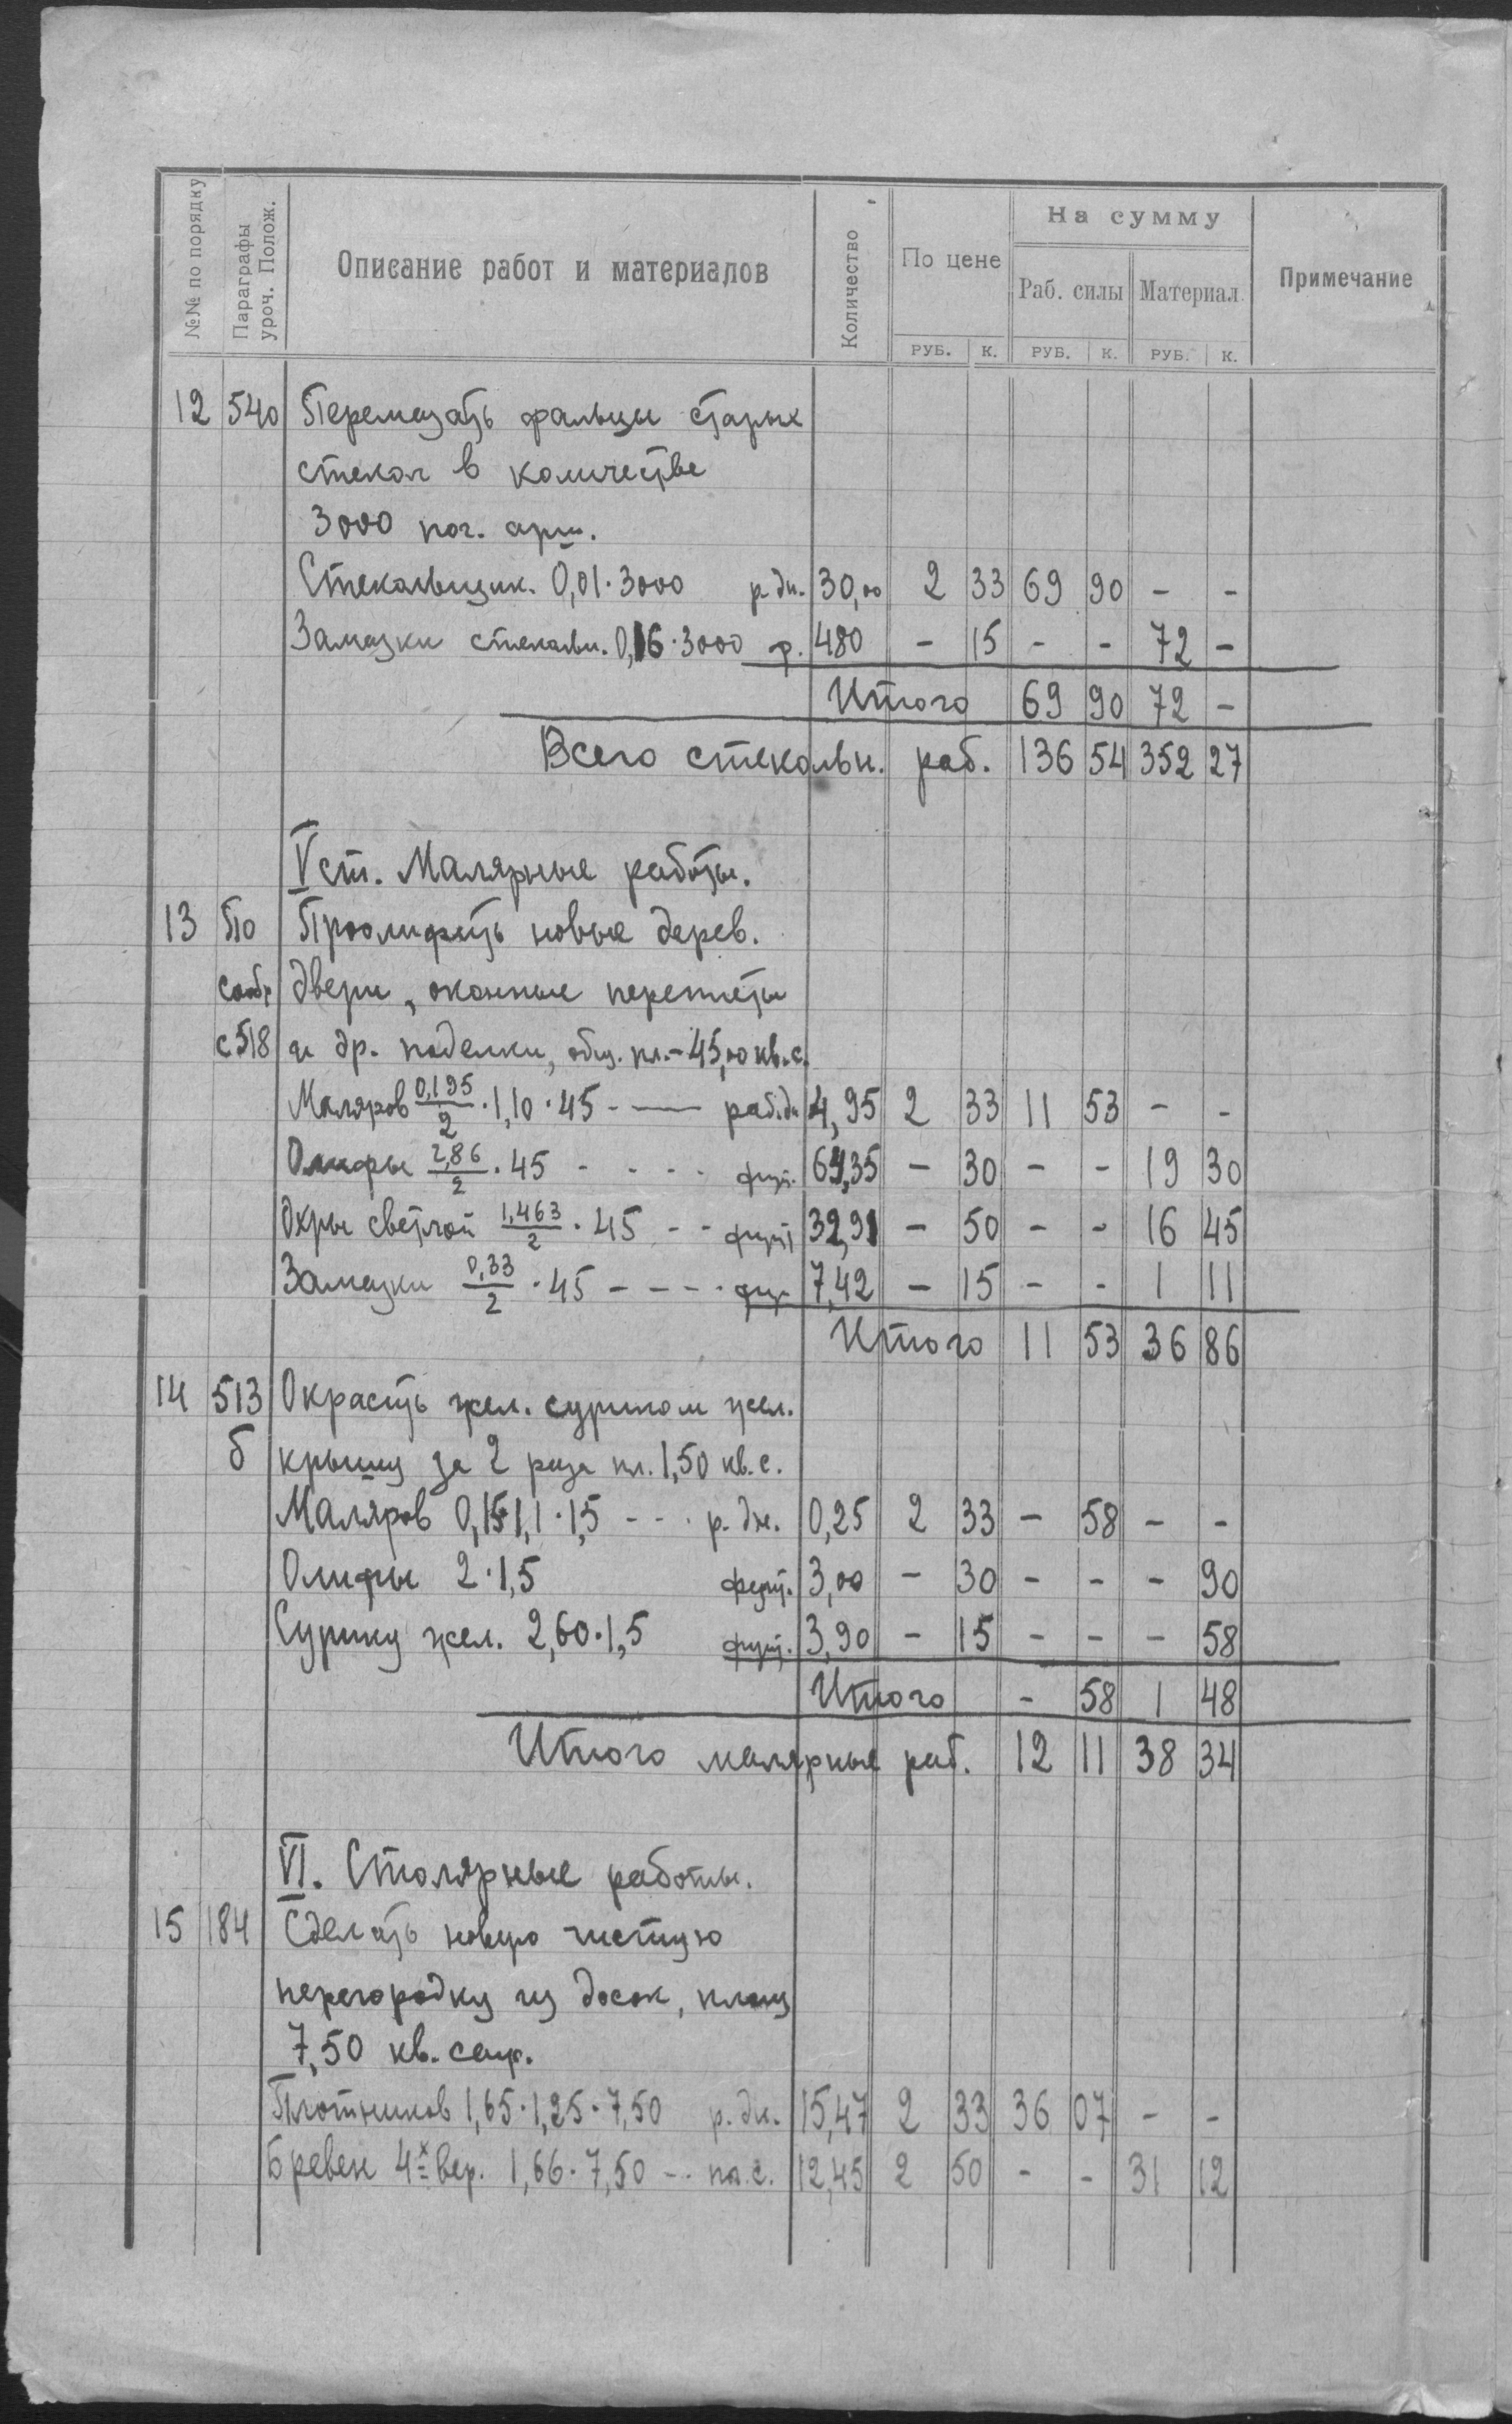 №№ по порядку
Параграфы уроч. Полож.
Описание работ и материалов
Количество
По цене
На сумму
Раб. силы Материал.
Примечание
РУБ. К. РУБ. К. РУБ. К.
12 540 Перемазать фальцы старых
стекол в количестве
3000 пог. арш.
Стекольщик. 0,01·3000 р. дн. 30,00 2 33 69 90 - -
Замазки стекольн. 0,16·3000 ф. 480 - 15 - - 72 -
Итого 69 90 72 -
Всего стекольн. раб. 136 54 352 27
V ст. Малярные работы.
13 По Проолифить новые дерев.
сообр двери, оконные переплеты
с 518 и др. поделки, общ. пл.-45,00 кв. с.
Маляров 0,195/2 ·1,10·45 - — раб. дн 4,95 2 33 11 53 - -
Олифы 2,86/2 ·45 - - - - фунт. 64,35 - 30 - - 19 30
Охры светлой 1,463/2 ·45 - - фунт 32,91 - 50 - - 16 45
Замазки 0,33/2 ·45 - - - - фун 7,42 - 15 - - 1 11
Итого 11 53 36 86
14 513 Окрасить жел. суриком жел.
б крышу за 2 раза пл. 1,50 кв. с.
Маляров 0,15·1,1·1,5 - - - р. дн. 0,25 2 33 - 58 - -
Олифы 2·1,5 фунт. 3,00 - 30 - - - 90
Сурику жел. 2,60·1,5 фунт. 3,90 - 15 - - - 58
Итого - 58 1 48
Итого малярные раб. 12 11 38 34
VI. Столярные работы.
15 184 Сделать новую чистую
перегородку из досок, площ
7,50 кв. саж.
Плотников 1,65·1,25·7,50 р. дн. 15,47 2 33 36 07 - -
Бревен 4х вер. 1,66·7,50 - - пог. с. 12,45 2 50 - - 31 12